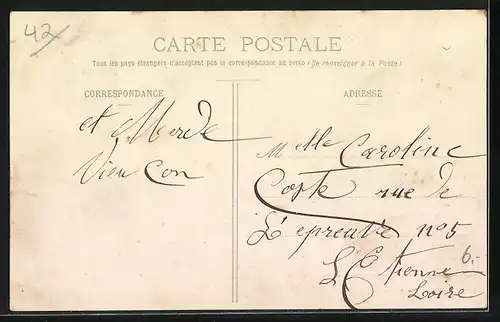 42
CARTE POSTALE
Tous les pays étrangers n'acceptent pas la correspondance au recto (Se renseigner à la Poste)
CORRESPONDANCE
ADRESSE
et Merde
Vieu Con
Melle Caroline
Coste rue de
L'épreuve n°5
St Etienne
Loire
6.-